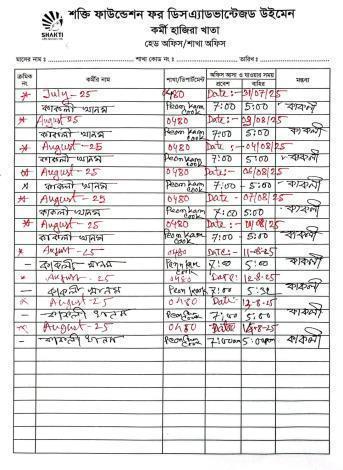 শক্তি ফাউন্ডেশন ফর ডিসএ্যাডভান্টেজড উইমেন
SHAKTI
কর্মী হাজিরা খাতা
হেড অফিস/শাখা অফিস
মাসের নাম : শাখা কোড নং : তারিখঃ
ক্রমিক নং কর্মীর নাম শাখা/ডিপার্টমেন্ট অফিস আসা ও যাওয়ার সময় মন্তব্য
প্রবেশ বাহির
* July-25 0480 Date:- 31/07/25
কাকলী খানম Peon kam cook 7:00 5:00 কাকলী
* August 25 0480 Date:- 03/08/25
কাকলী খানম Peon kam cook 7:00 5:00 কাকলী
* August-25 0480 Date:- 04/08/25
কাকলী খানম Peon kam cook 7:00 5:00 কাকলী
* August-25 0480 Date:- 06/08/25
কাকলী খানম Peon kam cook 7:00 - 5:00 কাকলী
* August-25 0480 Date:- 07/08/25
কাকলী খানম Peon kam cook 7:00 5:00 কাকলী
* August-25 0480 Date:-
কাকলী খানম Peon kam cook 7:00 - 5:00 কাকলী
* August-25 0480 Date:- 11-8-25
- কাকলী খানম cook 7:00 5:00 কাকলী
* August-25 0480 Date: 12-8-25
- কাকলী খানম Peon cook 7:00 কাকলী
* August-25 0480 Date:
- কাকলী খানম Peon cook 7:00 5:00 কাকলী
* August-25 0480 Date
- কাকলী খানম Peon cook 7:00am 5:00pm কাকলী